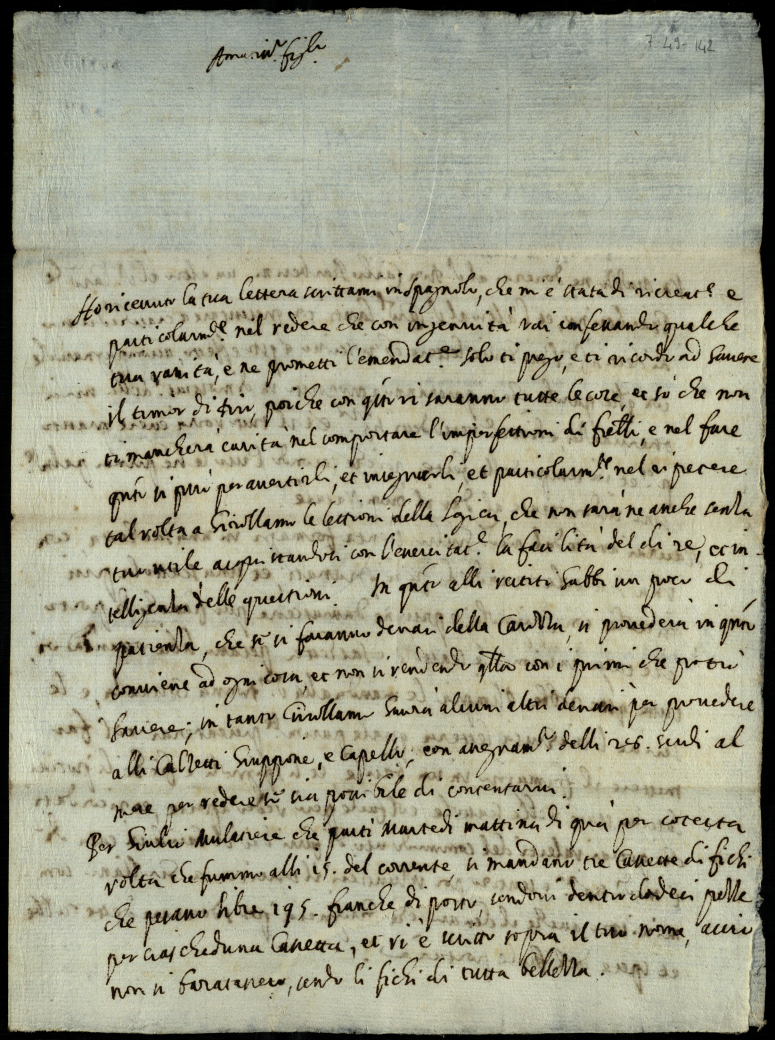 7-49-142
Amatis.o figlo
Ho ricevuto la tua lettera scrittami in Spagnolo, che mi è stata di ricreat.e e
particolarm.te nel vedere che con ingenuità vai confessando qualche
tua vanità, e ne prometti l'emendat.e solo ti prego, e ti ricordo ad havere
il timor di Dio, poiche con q.sto vi saranno tutte le cose, et so che non
ti mancherà carità nel comportare l'imperfettioni di fr̃elli, e nel fare
q.nto si può per avertirli, et insegnarli, et particolarm.te nel ripetere
tal volta a Girollamo le lettioni della Logica, che non sarà ne anche senza
tuo utile acquistandoti con l'esercitat.e la facilità del dire, et in-
telligenza delle questioni. In q.nto alli vestiti habbi un poco di
patienza, che se si faranno denari della , si provederà in q.nto
conviene ad ogni cosa, et non si vendendo con i primi che potrò
havere; in tanto Girollamo havrà alcuni altri denari per provedere
alli Calzetti Giuppone, e Capello, con assegnam.to delli scudi al
mese per vedere se sia possibile di contentarvi.
Per Giulio Mulatiere che partì Martedi mattina di quà per cotesta
volta che fummo alli 15. del corrente, si mandano tre Cassette di fichi
che pesano libre 195. franche di porto, sendovi dentro dodeci pelle
per ciascheduna Cassetta, et vi è scritto sopra il tuo nome, acciò
non si baratassero, sendo li fichi di tutta bellezza.